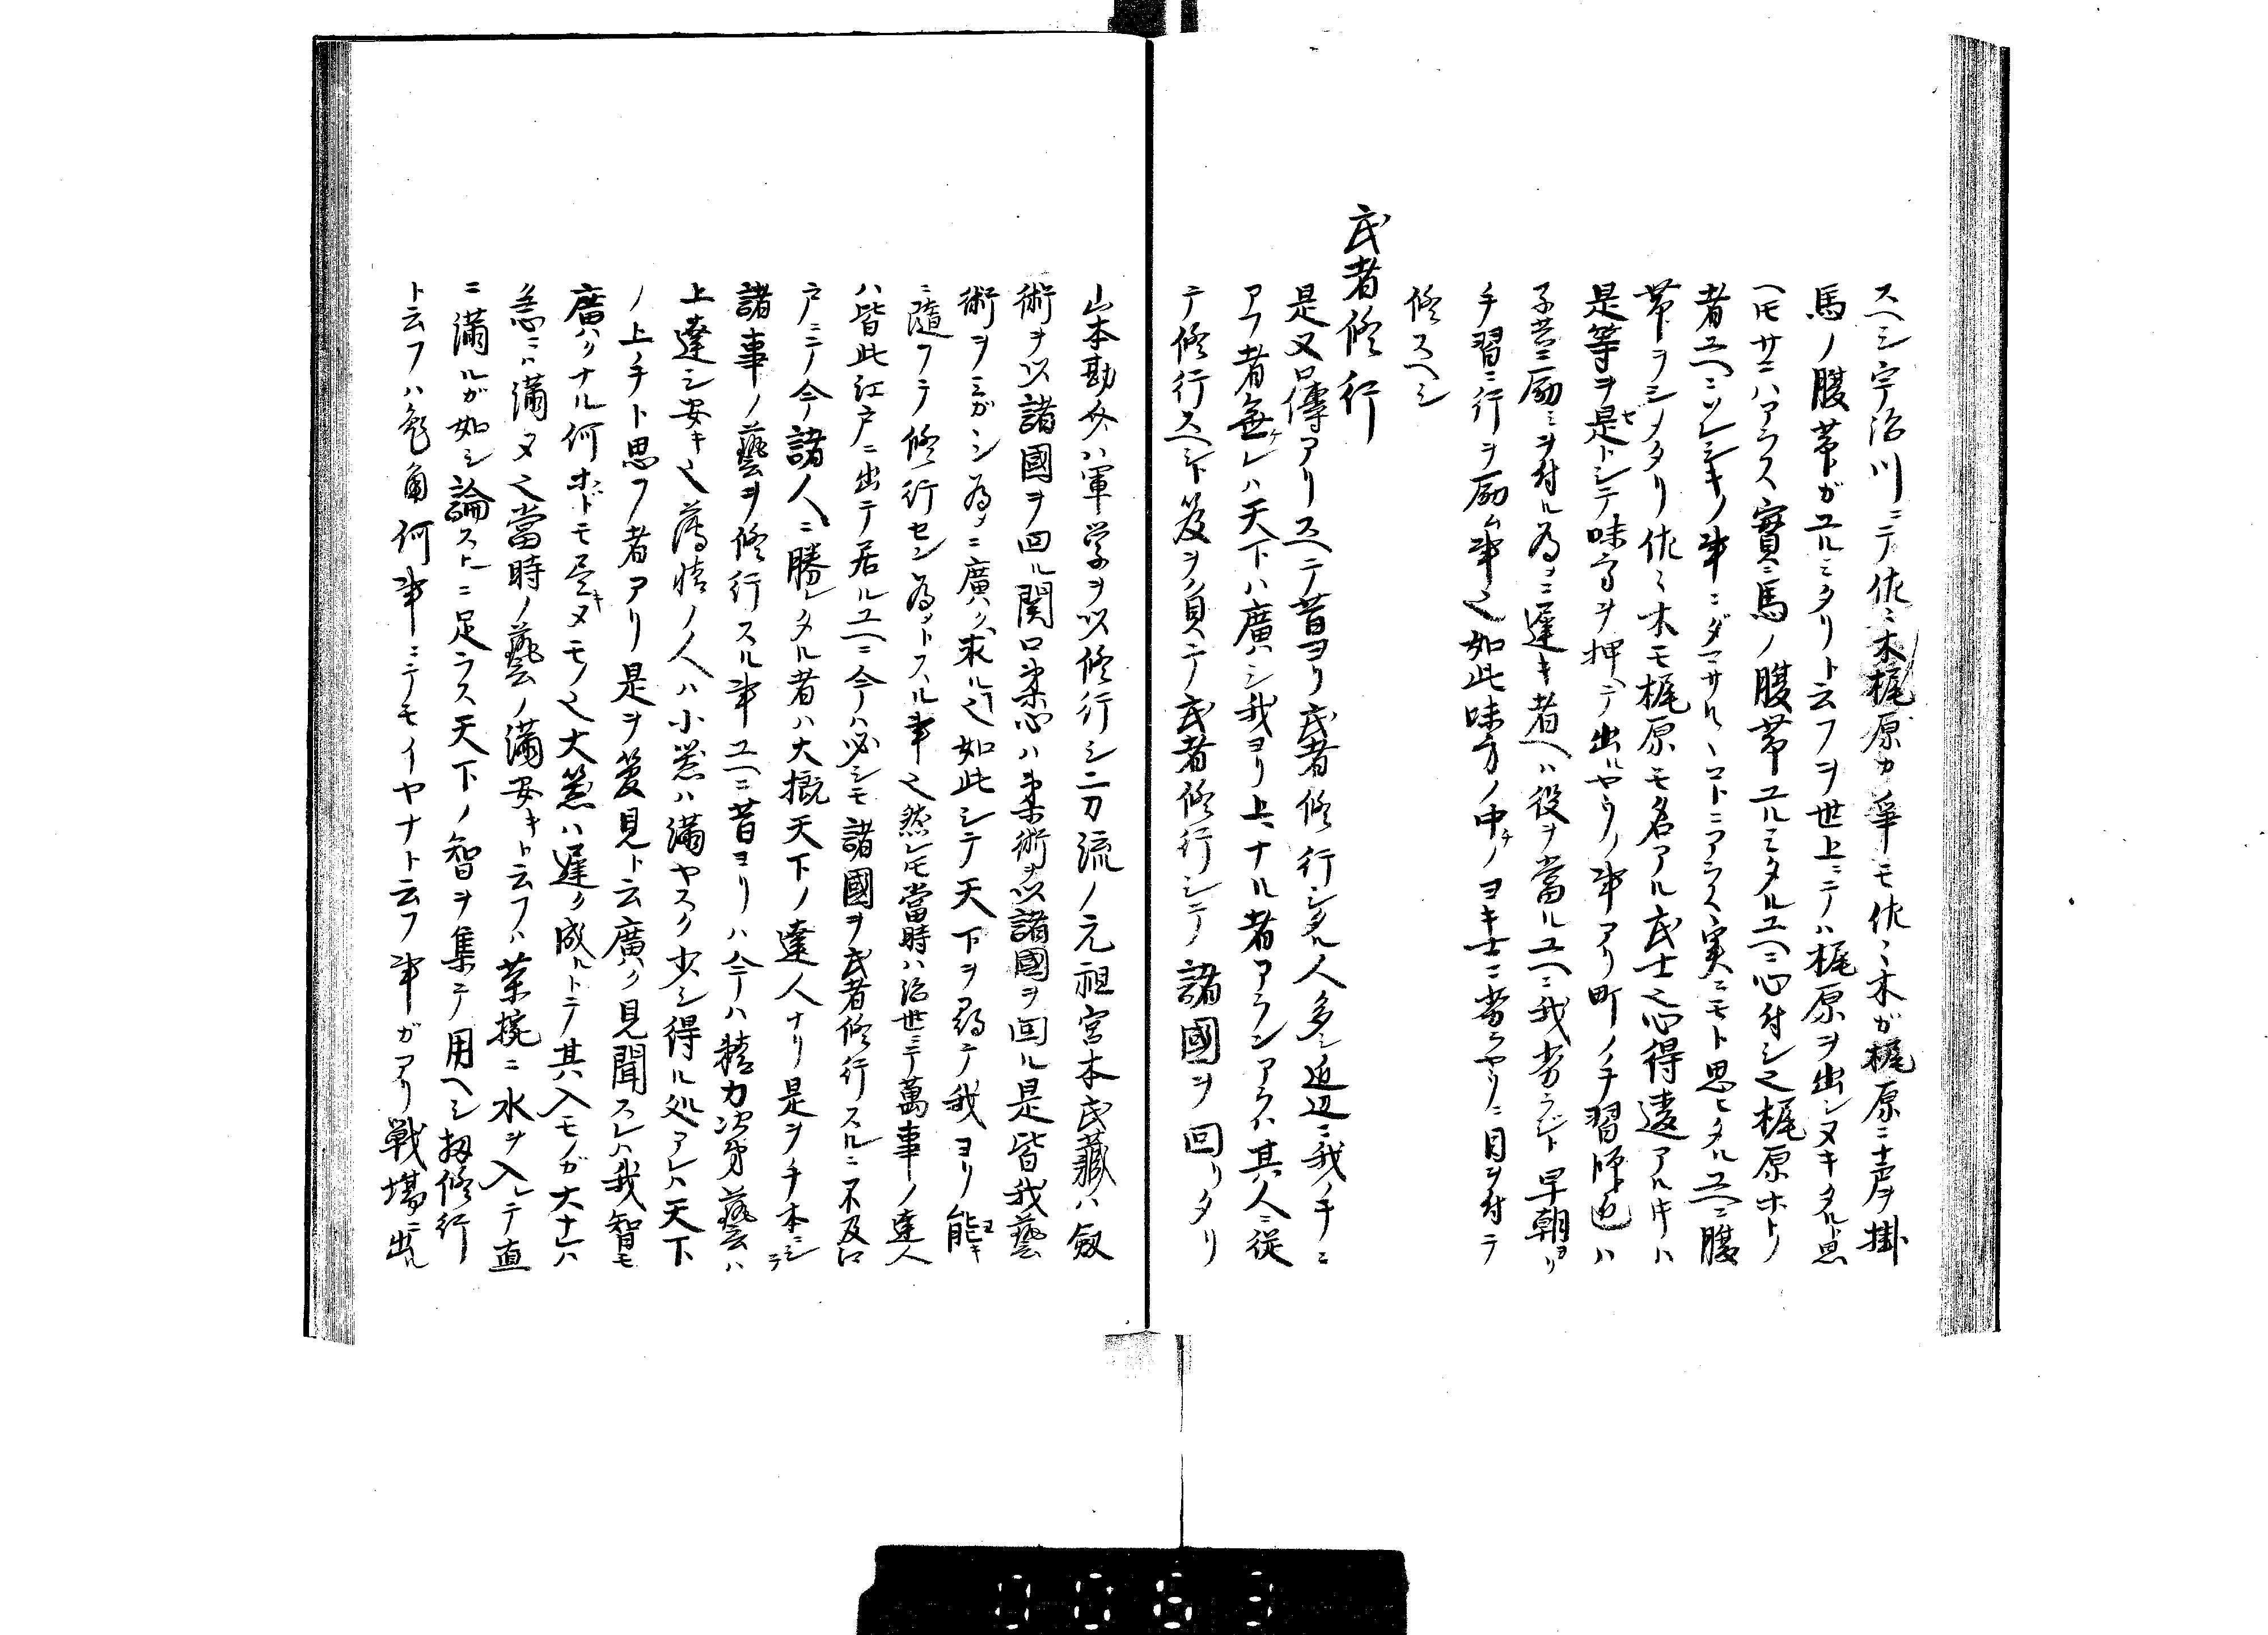 スヘシ宇治川ニテ佐々木梶原カ叓モ佐々木ガ梶原ニ声ヲ掛
馬ノ腹帯ガユルミタリト云フヲ世上ニテハ梶原ヲ出シヌキタルト思
ヘ𪜈サニハアラス實ニ馬ノ腹帯ユルミタルユヘニ心付シ也梶原ホトノ
者ユヘニソレシキノ事ニダマサルヽコトニアラス実ニモト思ヒタルユヘニ腹
帯ヲシメタリ佐々木モ梶原モ名アル武士也心得違アル𪜈ハ
是等ヲ是トシテ味方ヲ押ヘテ出ルヤウノ事アリ町ノ手習師匠ハ
子共ニ励ミヲ付ル為メニ遅キ者ヘハ役ヲ當ルユヘニ我劣ラジト早朝ヨリ
手習ニ行ヲ励ム事也如此味方ノ中チノヨキ士ニ劣ラヤウニ目ヲ付テ
修スヘシ
武者修行
是又口傳アリスヘテ昔ヨリ武者修行シタル人多シ近辺ニ我ノ手ニ
アフ者無ケレハ天下ハ廣ハシ我ヨリ上ナル者アランアラハ其人ニ従
テ修行スヘシト笈ヲノ負テ武者修行シテ諸國ヲ回リタリ
山本勘介ハ軍学ヲ以修行シ二刀流ノ元祖宮本武藏ハ劔
術ヲ以諸國ヲ回ル関口柔心ハ柔術ヲ以諸國ヲ回ル是皆我藝
術ヲミガシ為メニ廣ハク求ル也如此シテ天下ヲ尋テ我ヨリ能ヨキ
ニ隨フテ修行セン為メトスル事也然レ𪜈當時ハ治世ニテ萬事ノ達人
ハ皆此江戸ニ出テ居ルユヘニ今ハ必シモ諸國ヲ武者修行スルニ不及江
戸ニテ今諸人ニ勝レタル者ハ大概天下ノ達人ナリ是ヲ手本ニシテ
諸事ノ藝ヲ修行スル事ユヘニ昔ヨリハ今ハ精力次第藝ハ
上達シ安キ也薄情ノ人ハ小器ハ満ヤスク少シ得ル処アレハ天下
ノ上手ト思フ者アリ是ヲ管見ト云廣ハク見聞スレハ我智モ
廣ハクナル何ホドモ尽キヌモノ也大器ハ遅ク成ルトテ其入モノガ大ナレハ
急ニハ満ヌ也當時ノ藝ノ満安キト云フハ茶椀ニ水ヲ入レテ直
ニ満ルガ如シ論ストニ足ラス天下ノ智ヲ集テ用ヘシ扨修行
ト云フハ兔角何事ニテモイヤナト云フ事ガアリ戦場ニ出ル